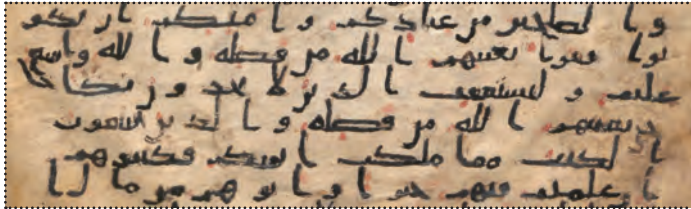 والصلحين من عبادكم وامئكم ان يكو
نوا فقرا يغنهم الله من فضله والله واسع
عليم وليستعفف الذين لا يجدون نكاحا
يغنيهم الله من فضله والذين يبتغون
الكتب مما ملكت ايمنكم فكتبوهم
ان علمتم فيهم خيرا واتوهم من مال ا